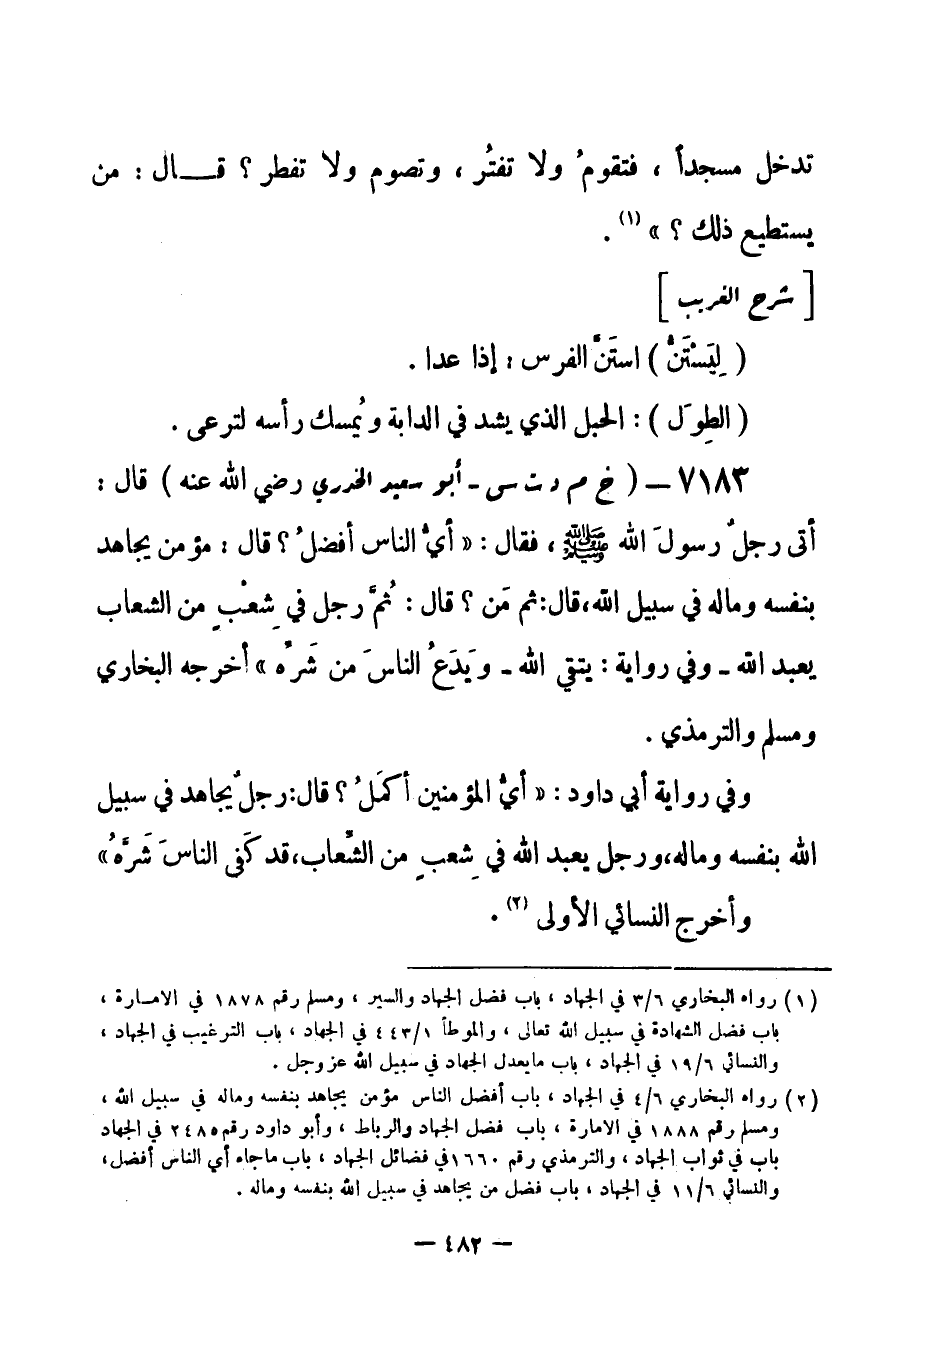 تدخل مسجداً ، فتقومُ ولا تفتُر ، وتصوم ولا تفطر ؟ قـــال : من
يستطيع ذلك ؟ » (١) .
[ شرح الغريب ]
( لِيَسْتَنُّ ) استَنَّ الفرس : إذا عدا .
( الطِوَل ) : الحبل الذي يشد في الدابة ويُمسك رأسه لترعى .
٧١٨٣ – ( خ م د ت س - أبو سعيد الخدري رضي الله عنه ) قال :
أتى رجلٌ رسولَ الله ﷺ ، فقال : « أيُّ الناس أفضلُ ؟ قال : مؤمن يجاهد
بنفسه وماله في سبيل الله،قال:ثم مَن ؟ قال : ثُمَّ رجل في شِعْبٍ من الشعاب
يعبد الله - وفي رواية : يتقي الله - ويَدَعُ الناسَ من شَرِّه » أخرجه البخاري
ومسلم والترمذي .
وفي رواية أبي داود : « أيُّ المؤمنين أكمَلُ ؟ قال:رجلٌ يجاهد في سبيل
الله بنفسه وماله،ورجل يعبد الله في شِعبٍ من الشِّعاب،قد كَفى الناسَ شَرَّهُ»
وأخرج النسائي الأولى (٢) .
(١) رواه البخاري ٣/٦ في الجهاد ، باب فضل الجهاد والسير ، ومسلم رقم ١٨٧٨ في الامـارة ،
باب فضل الشهادة في سبيل الله تعالى ، والموطأ ٤٤٣/١ في الجهاد ، باب الترغيب في الجهاد ،
والنسائي ١٩/٦ في الجهاد ، باب مايعدل الجهاد في سبيل الله عز وجل .
(٢) رواه البخاري ٤/٦ في الجهاد ، باب أفضل الناس مؤمن يجاهد بنفسه وماله في سبيل الله ،
ومسلم رقم ١٨٨٨ في الامارة ، باب فضل الجهاد والرباط ، وأبو داود رقم ٢٤٨٥ في الجهاد
باب في ثواب الجهاد ، والترمذي رقم ١٦٦٠في فضائل الجهاد ، باب ماجاء أي الناس أفضل،
والنسائي ١١/٦ في الجهاد ، باب فضل من يجاهد في سبيل الله بنفسه وماله .
– ٤٨٢ –